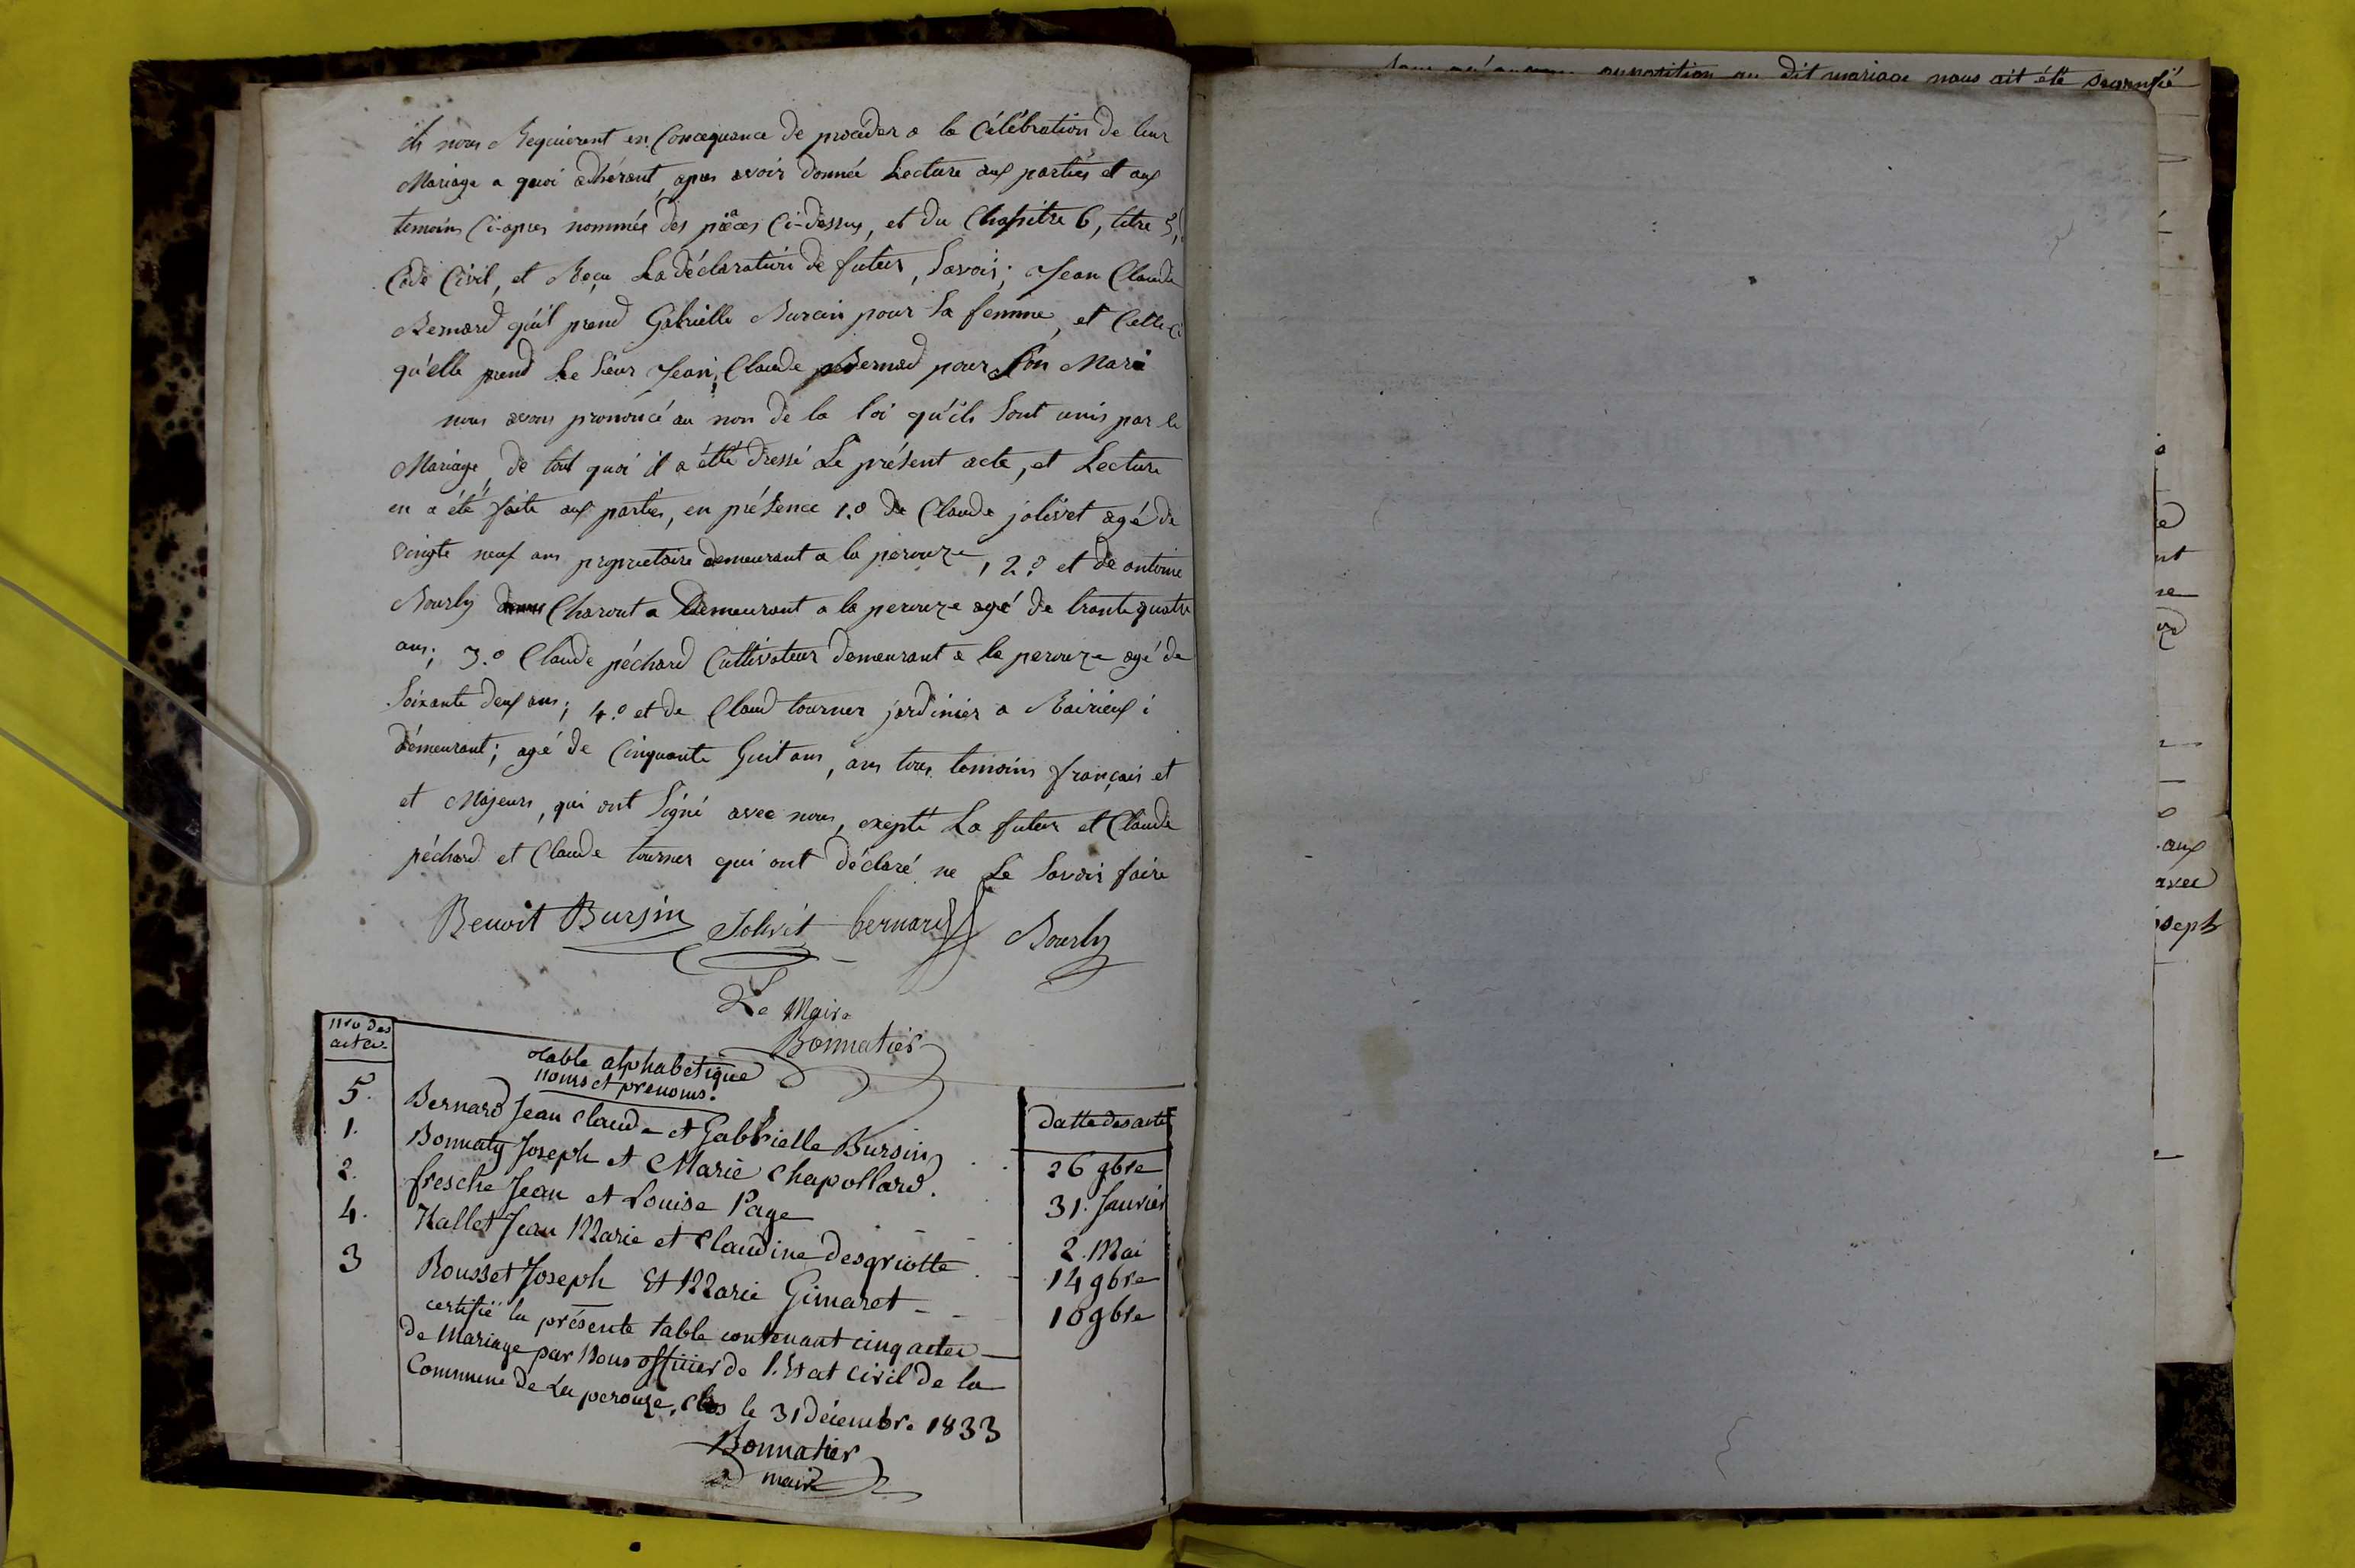 ils nous Requièrent en Consequance de procéder a la Célébration de leur
Mariage a quoi adhérant, apres avoir donnée Lecture aux parties et aux
temoins Ci-apres nommés des pièces Ci-dessus, et du Chapitre 6, titre 5,
Code Civil, et Reçu La déclaration de futurs, Savoir; Jean Claude
Bernard qu'il prend Gabrielle Bursin pour Sa femme, et Celle ci
qu'elle prend Le Sieur Jean Claude Bernard pour Son Mari
nous avons prononcé au non de la loi qu'ils Sont unis par le
Mariage, de tout quoi il a étté dressé Le présent acte, et Lecture
en a été faite aux parties, en présence 1.º de Claude jolivet agé de
vingte neuf ans proprietaire demeurant a la perouze, 2.º et de antoine
Bourly Charont a demeurant a la perouze agé de trante quatre
ans; 3.º Claude péchard Cultivateur demeurant a la perouze agé de
Soixante deux ans; 4.º et de Claud tourner jardinier a i
démeurant; agé de Cinquante huit ans, ans tous temoins français et
et Majeurs, qui ont Signé avec nous, exepté La futur et Claude
péchard et Claude tourner qui ont déclaré ne Le Savoir faire
Benoit Bursin Jolivet bernard Bourly
Le Maire
Bonnatier
nro des
actes.
table alphabetique
noms et prenoms.
datte des actes
5. Bernard Jean Claude et Gabrielle Bursin 26 9bre
1. Bonnaty Joseph et Marie Chapollard. 31. Janvier
2. fresche Jean et Louise Page 2. Mai
4. Hallet Jean Marie et Claudine desgriotte 14 9bre
3 Rousset Joseph Et Marie Gimaret 10 9bre
certifié la présente table contenant cinq actes
de Mariage par Nous officier de l'Etat Civil de la
Commune de La perouze, Clos le 31 décembre 1833
Bonnatier
maire
opposition au dit mariage nous ait été
nt
aux
avec
seph